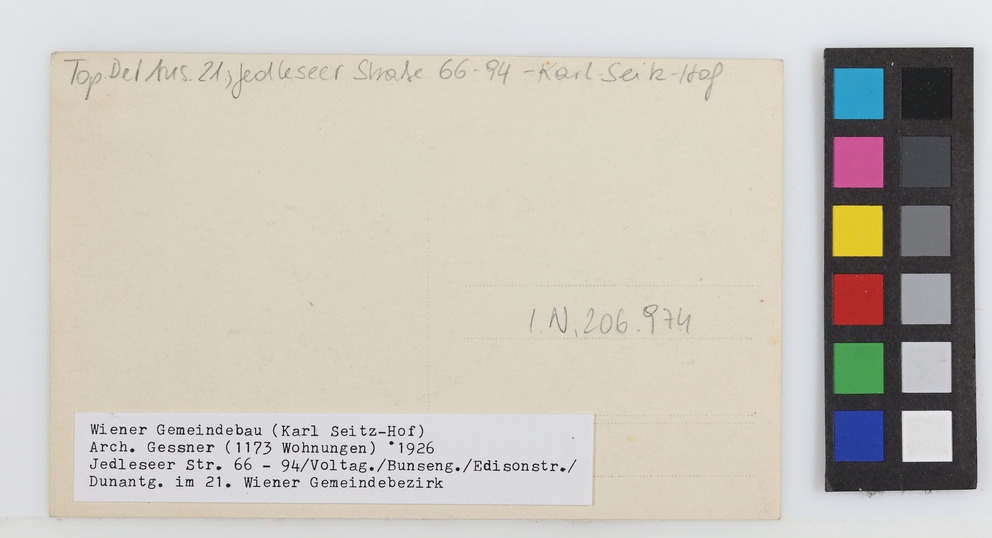 Top. Del Aus. 21, Jedleseer Straße 66-94 - Karl-Seitz-Hof
I.N. 206.974
Wiener Gemeindebau (Karl Seitz-Hof)
Arch. Gessner (1173 Wohnungen) *1926
Jedleseer Str. 66 - 94/Voltag./Bunseng./Edisonstr./
Dunantg. im 21. Wiener Gemeindebezirk